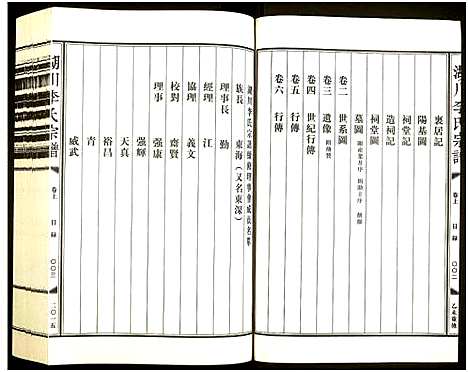 湖川李氏宗譜
裏居記
陽基圖
祠堂記
造祠記
祠堂圖
墓圖
卷二　世系圖
卷三　遺像
卷四　世紀行傳
卷五　行傳
卷六　行傳
乙未續修
湖川李氏宗譜續修理事會成員名單
族長　東海（又名東深）
理事長　勤
經理　江
協理　義文
校對　齋賢
理事　强康
强輝
天真
裕昌
青
威武
湖川李氏宗譜
卷上　目錄　〇〇二
二〇一五